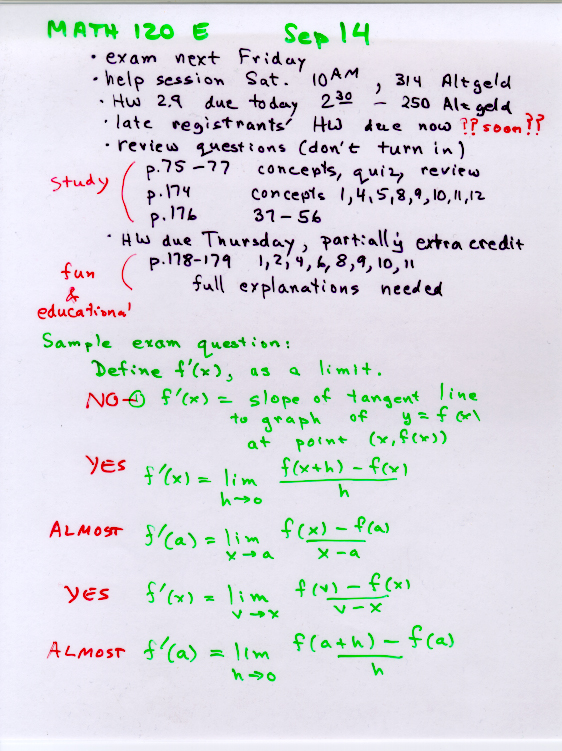 MATH 120 E Sep 14
• exam next Friday
• help session Sat. 10 AM, 314 Altgeld
• HW 2.9 due today 2 30 – 250 Altgeld
• late registrants' HW due now ?? soon ??
• review questions (don't turn in)
study ( p.75–77 concepts, quiz, review
p.174 concepts 1,4,5,8,9,10,11,12
p.176 37–56
• HW due Thursday, partially extra credit
fun & educational ( p.178–179 1,2,4,6,8,9,10,11
full explanations needed
Sample exam question:
Define f'(x), as a limit.
NO ① f'(x) = slope of tangent line
to graph of y = f(x)
at point (x, f(x))
YES f'(x) = lim h→0 f(x+h) – f(x) / h
ALMOST f'(a) = lim x→a f(x) – f(a) / x – a
YES f'(x) = lim v→x f(v) – f(x) / v – x
ALMOST f'(a) = lim h→0 f(a+h) – f(a) / h